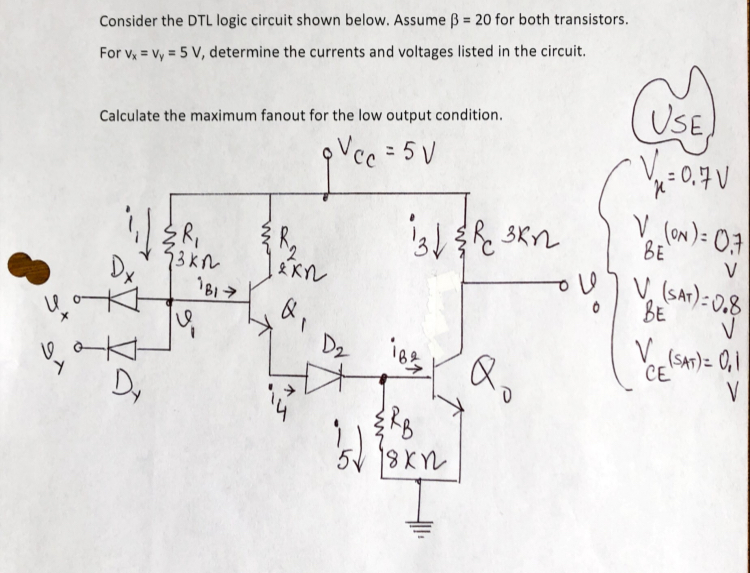 Consider the DTL logic circuit shown below. Assume β = 20 for both transistors.
For vx = vy = 5 V, determine the currents and voltages listed in the circuit.
Calculate the maximum fanout for the low output condition.
USE
Vcc = 5 V
Vγ = 0.7 V
VBE (ON) = 0.7 V
VBE (SAT) = 0.8 V
VCE (SAT) = 0.1 V
i1
R1
3KΩ
R2
2KΩ
i3
RC 3KΩ
Dx
iB1
vx
v1
Q1
vo
vy
Dy
D2
iB2
Qo
i4
i5
RB
18KΩ